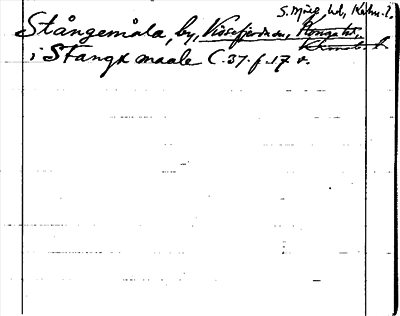 S. Möre hd, Kalm. l.
Stångemåla, by, Vissefjärda sn, Konga hd,
i Stangx maale C. 37. f. 17 v.